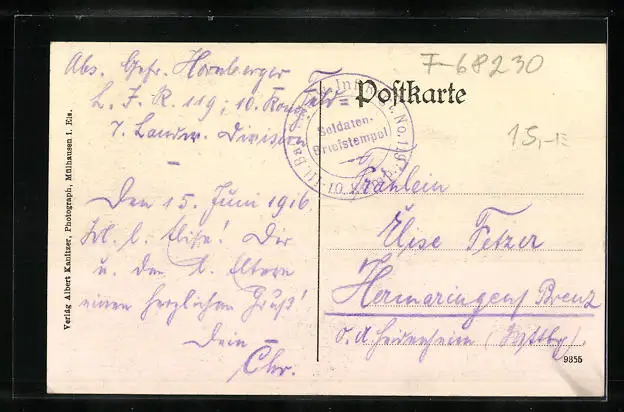 Abs. Gefr. Hornberger
L. J. R. 119; 10. Komp.
7. Landw. Division
–
Den 15. Juni 1916
Lbl. l. Elise! Dir
u. den l. Eltern
einen herzlichen Gruß!
Dein –
Chr.
Feld=
Postkarte
F-68230
15,-
Soldaten-
Briefstempel
Fräulein
Elise Fetzer
Hermaringen/Brenz
O. A. Heidenheim (Wttbg).
9855
Verlag Albert Kanitzer, Photograph, Mülhausen i. Els.